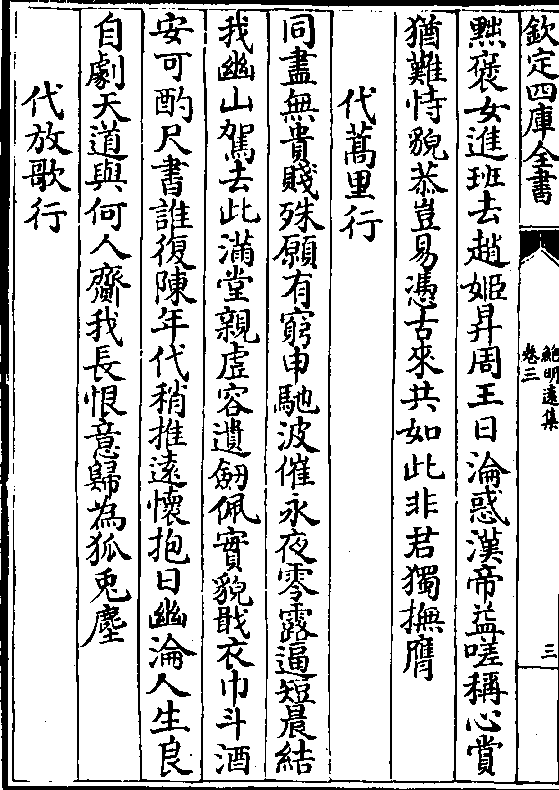 欽定四庫全書
鮑明遠集
卷三
三
黜褒女進班去趙姬昇周王日淪惑漢帝益嗟稱心賞
猶難恃貌恭豈易憑古來共如此非君獨撫膺
代蒿里行
同盡無貴賤殊願有窮申馳波催永夜零露逼短晨結
我幽山駕去此滿堂親虛容遺劒佩實貌戢衣巾斗酒
安可酌尺書誰復陳年代稍推遠懷抱日幽淪人生良
自劇天道與何人齎我長恨意歸為狐兎塵
代放歌行